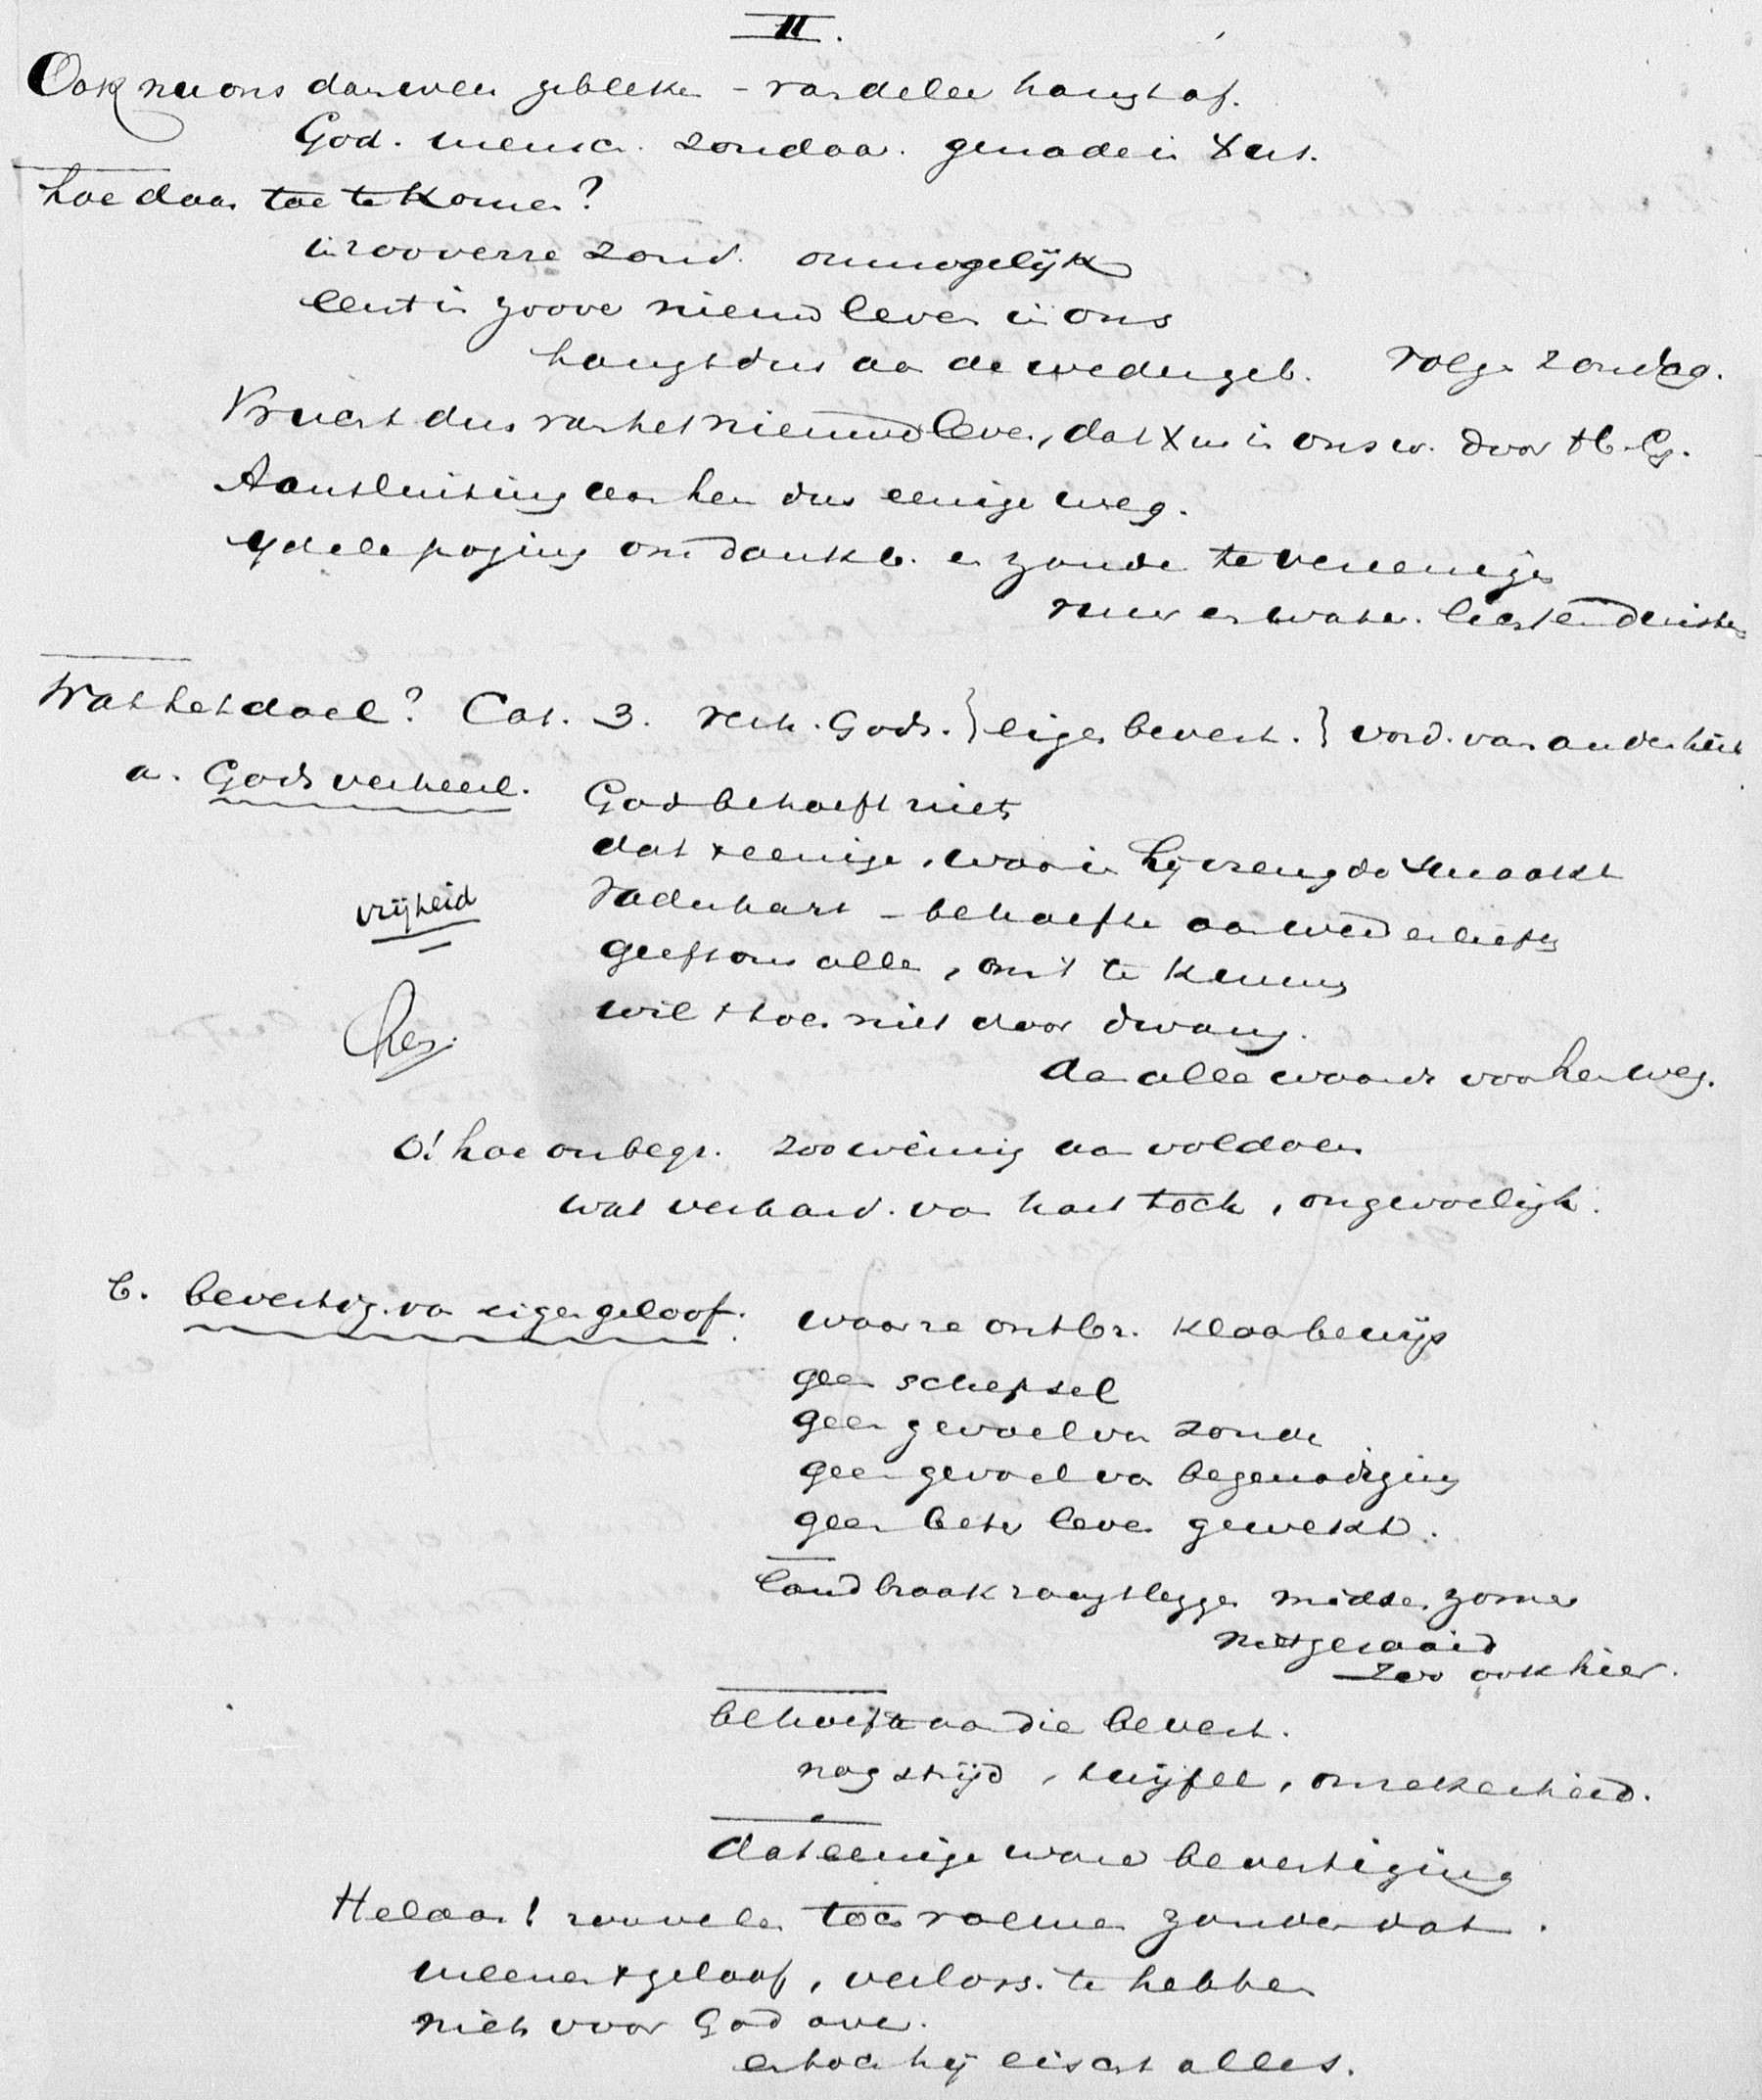 II.
Ook nu ons daareven gebleken - van alles hangt af.
God. mensch. zondaar. genade in Xus.
hoe daar toe te komen?
in zooverre zond. onmogelijk
eerst in zoove nieuw leven in ons
hangt dus aa de wedergeb. volge Zondag.
Vrucht dus van het nieuwe leven, dat Xus in ons w. door H. G.
Aansluiting aan hem dus eenige weg.
ydele poging om dankb. en zonde te vereenigen
vuur en water. licht en duister
Wat het doel? Cat. 3. verh. Gods. } eigen bevest. } vord. van anderen heil
a. Gods verheerl. God behoeft niets
dat t eenige, waarin hij vreugde smaakt
vrijheid
Vaderhart - behoefte aan wederliefde
geeft ons alles, om 't te kennen
wil t toch niet door dwang.
dan alle waarde voor hem weg.
O! hoe onbegr. zoo weinig aan voldoen
wat verhard. van hart toch, ongevoeligh.
b. bevestig. van eigen geloof. waar ze ontbr. klaar bewijs
geen schepsel
geen gevoel van zonde
geen gevoel van begenadiging
geen beter leven gewekt.
land braak zaagt leggen midden zomer
niet gezaaid
zoo ook hier.
behoefte aan die bevest.
nog strijd, twijfel, onzekerheid.
dat eenige ware bevestiging
Helaas! zoovelen toch roemen zonder dat.
meenen t geloof, verloss. te hebben
niets voor God over.
en toch hij eischt alles.